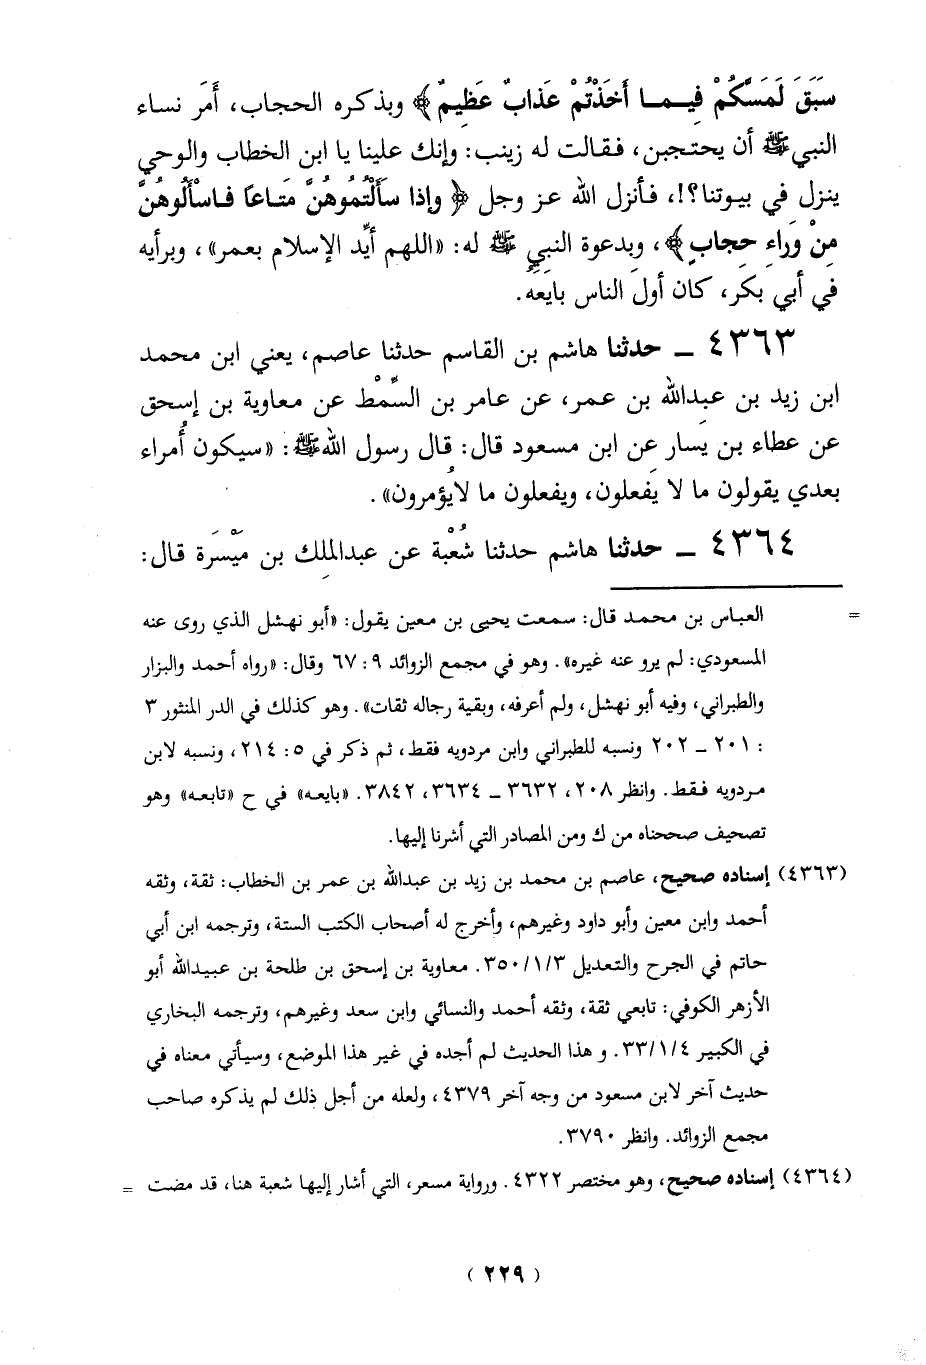 سَبَقَ لَمَسَّكُمْ فِيـمـا أَخَذْتُمْ عَذابٌ عَظِيمٌ﴾ وبذكره الحجاب، أَمَر نساء
النبي ﷺ أن يحتجبن، فقالت له زينب: وإنك علينا يا ابن الخطاب والوحي
ينزل في بيوتنا؟!، فأنزل الله عز وجل ﴿وإذا سَأَلْتُمُوهُنَّ مَتاعًا فاسْأَلُوهُنَّ
مِنْ وَراءِ حِجابٍ﴾، وبدعوة النبي ﷺ له: «اللهم أيِّد الإسلام بعمر»، وبرأيه
في أبي بكر، كان أولَ الناس بايَعَه.
٤٣٦٣ ــ حدثنا هاشم بن القاسم حدثنا عاصم، يعني ابن محمد
ابن زيد بن عبدالله بن عمر، عن عامر بن السِّمْط عن معاوية بن إسحق
عن عطاء بن يَسار عن ابن مسعود قال: قال رسول الله ﷺ: «سيكون أُمراء
بعدي يقولون ما لا يَفعلون، ويفعلون ما لا يُؤمرون».
٤٣٦٤ ــ حدثنا هاشم حدثنا شُعْبة عن عبدالملِك بن مَيْسَرة قال:
= العباس بن محمد قال: سمعت يحيى بن معين يقول: «أبو نهشل الذي روى عنه
المسعودي: لم يرو عنه غيره». وهو في مجمع الزوائد ٩: ٦٧ وقال: «رواه أحمد والبزار
والطبراني، وفيه أبو نهشل، ولم أعرفه، وبقية رجاله ثقات». وهو كذلك في الدر المنثور ٣
: ٢٠١ ــ ٢٠٢ ونسبه للطبراني وابن مردويه فقط، ثم ذكر في ٥: ٢١٤، ونسبه لابن
مردويه فقط. وانظر ٢٠٨، ٣٦٣٢ ــ ٣٦٣٤، ٣٨٤٢. «بايعه» في ح «تابعه» وهو
تصحيف صححناه من ك ومن المصادر التي أشرنا إليها.
(٤٣٦٣) إسناده صحيح، عاصم بن محمد بن زيد بن عبدالله بن عمر بن الخطاب: ثقة، وثقه
أحمد وابن معين وأبو داود وغيرهم، وأخرج له أصحاب الكتب الستة، وترجمه ابن أبي
حاتم في الجرح والتعديل ٣/١/٣٥٠. معاوية بن إسحق بن طلحة بن عبيدالله أبو
الأزهر الكوفي: تابعي ثقة، وثقه أحمد والنسائي وابن سعد وغيرهم، وترجمه البخاري
في الكبير ٤/١/٣٣. و هذا الحديث لم أجده في غير هذا الموضع، وسيأتي معناه في
حديث آخر لابن مسعود من وجه آخر ٤٣٧٩، ولعله من أجل ذلك لم يذكره صاحب
مجمع الزوائد. وانظر ٣٧٩٠.
(٤٣٦٤) إسناده صحيح، وهو مختصر ٤٣٢٢. ورواية مسعر، التي أشار إليها شعبة هنا، قد مضت =
( ٢٢٩ )